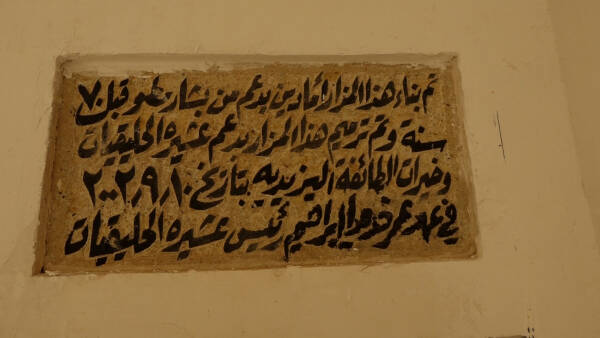 تم بناء هذا المزار أمادين بدعم من بشار خلو قبل ٧٠
سنة وتم ترميم هذا المزار بدعم عشيرة الحليقيات
وخيرات الطائفة اليزيديه بتاريخ ٢٠٠٢/٩/١٠
في عهد عمر ابراهيم رئيس عشيرة الحليقيات